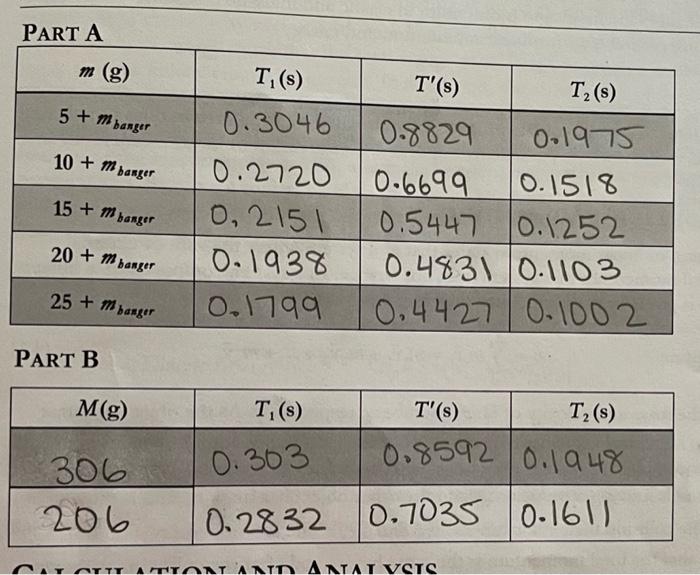 PART A
m (g) T₁(s) T'(s) T₂(s)
5 + m hanger 0.3046 0.8829 0.1975
10 + m hanger 0.2720 0.6699 0.1518
15 + m hanger 0,2151 0.5447 0.1252
20 + m hanger 0.1938 0.4831 0.1103
25 + m hanger 0.1799 0.4427 0.1002
PART B
M(g) T₁(s) T'(s) T₂(s)
306 0.303 0.8592 0.1948
206 0.2832 0.7035 0.1611
CALCULATION AND ANALYSIS